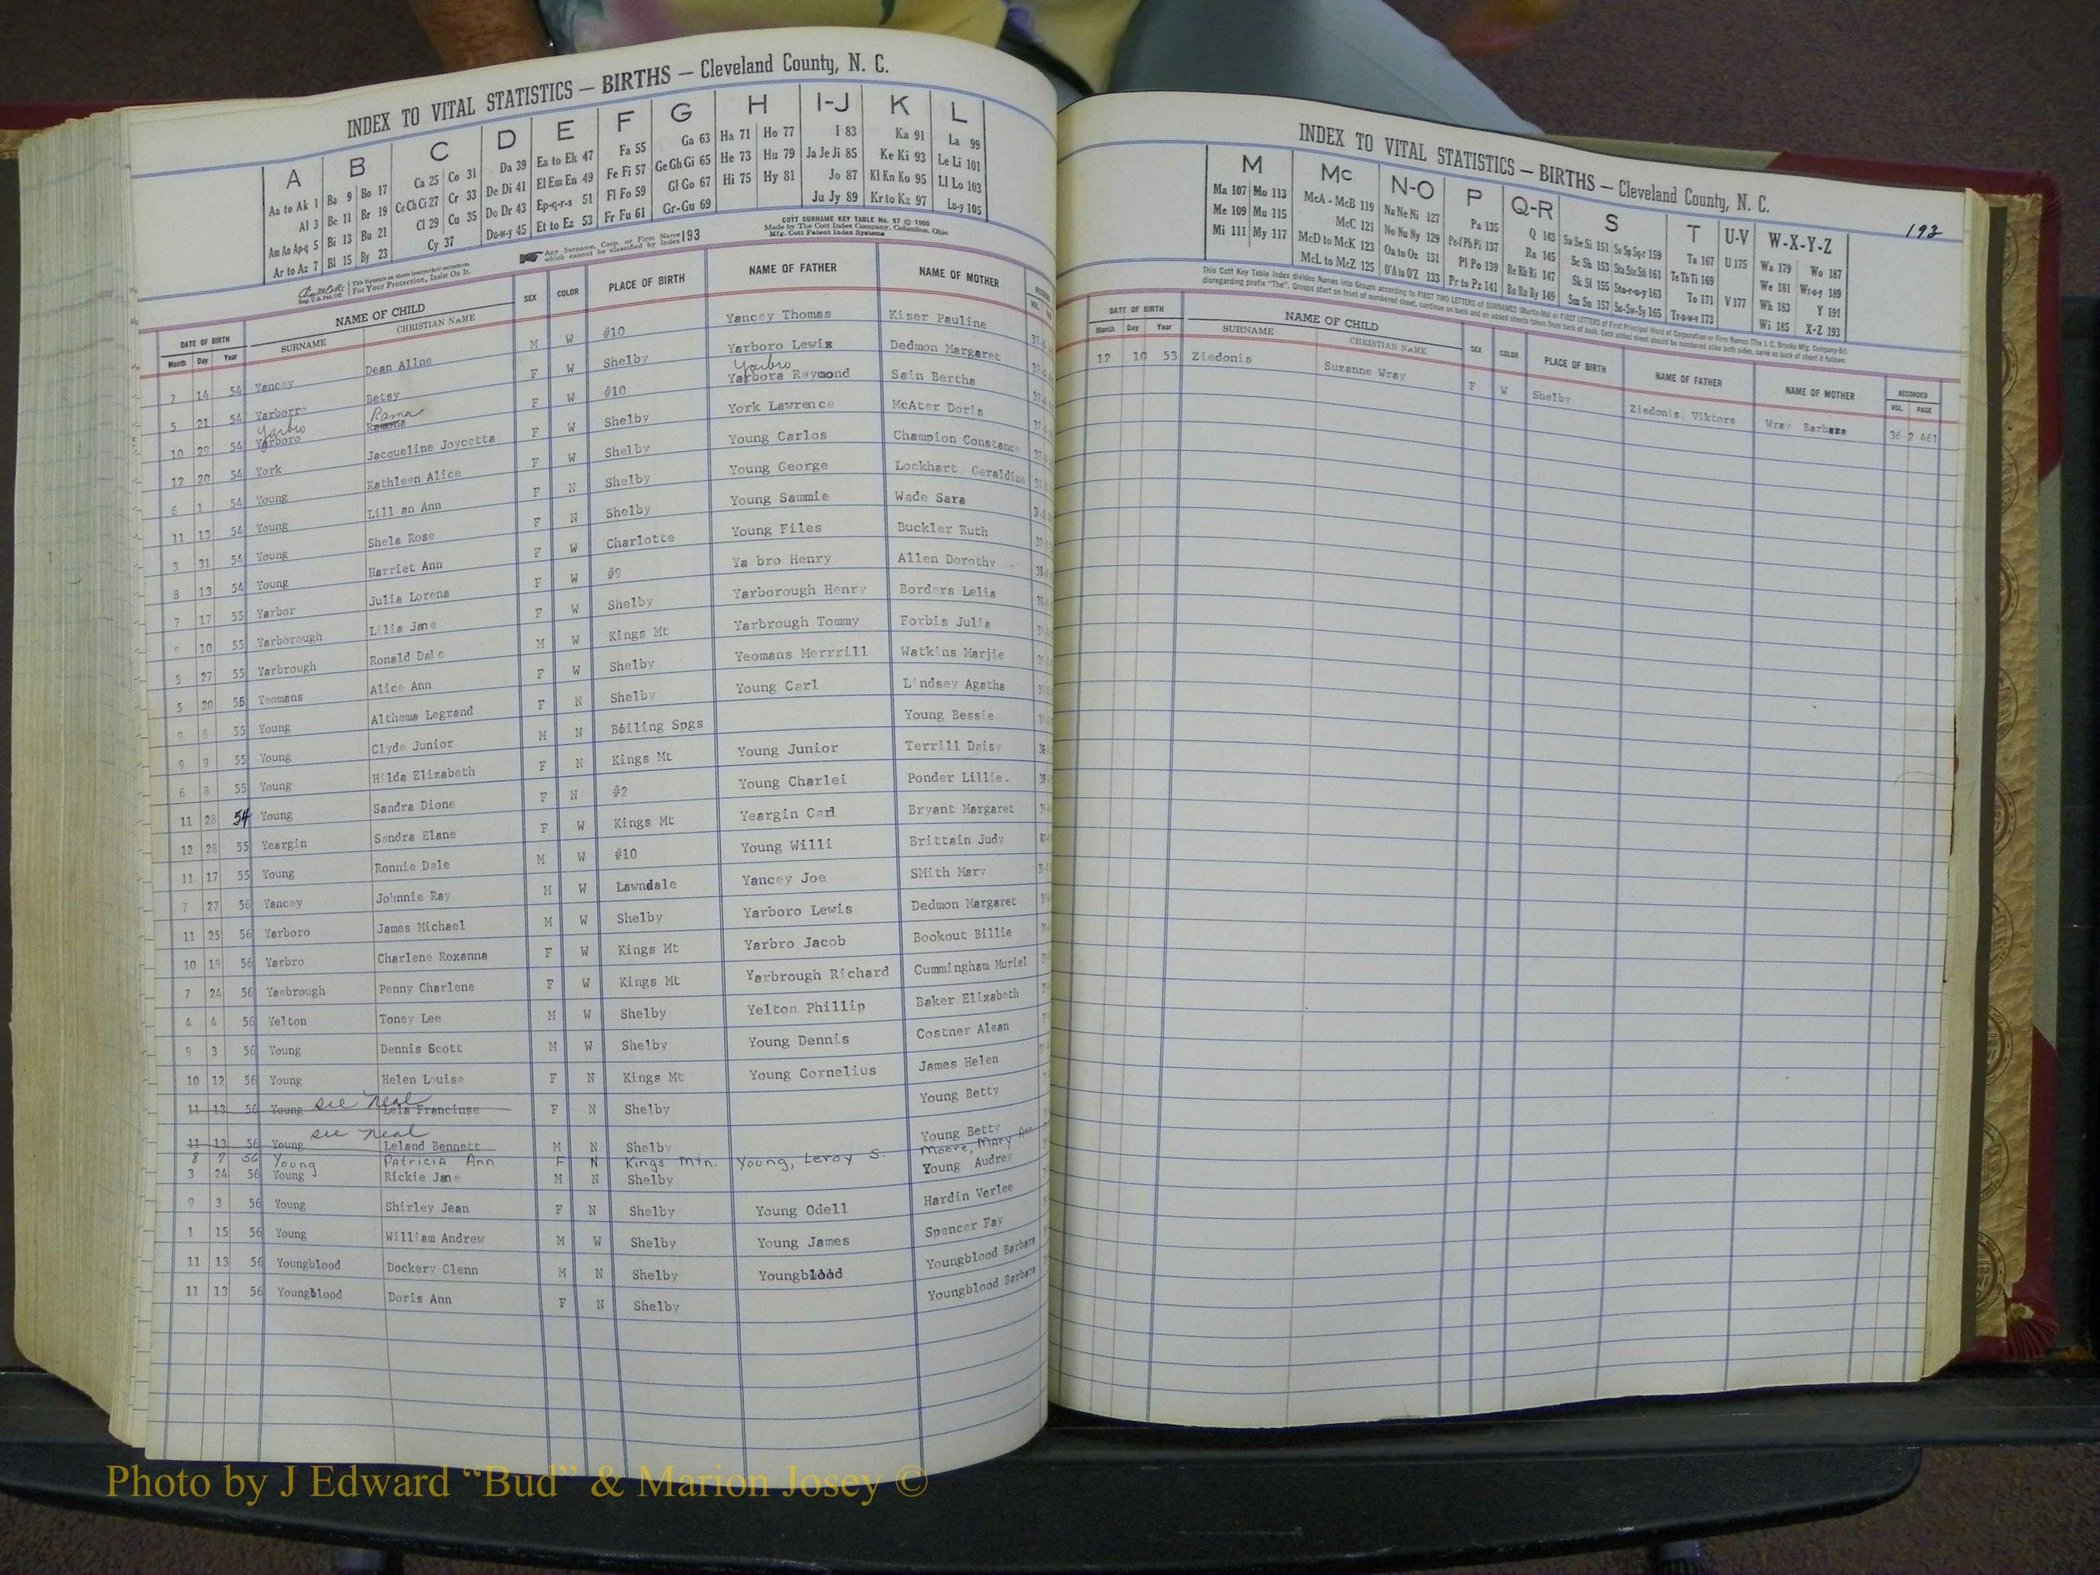 INDEX TO VITAL STATISTICS — BIRTHS — Cleveland County, N. C.
A B C D E F G H I-J K L
Aa to Ak 1 Ba 9 Bo 17 Ca 25 Co 31 Da 39 Ea to Ek 47 Fa 55 Ga 63 Ha 71 Ho 77 I 83 Ka 91 La 99
Al 3 Be 11 Br 19 Ce Ch Ci 27 Cr 33 De Di 41 El Em En 49 Fe Fi 57 Ge Gh Gi 65 He 73 Hu 79 Ja Je Ji 85 Ke Ki 93 Le Li 101
Am An Ap-q 5 Bi 13 Bu 21 Cl 29 Cu 35 Do Dr 43 Ep-q-r-s 51 Fl Fo 59 Gl Go 67 Hi 75 Hy 81 Jo 87 Kl Kn Ko 95 Ll Lo 103
Ar to Az 7 Bl 15 By 23 Cy 37 Du-w-y 45 Et to Ez 53 Fr Fu 61 Gr-Gu 69 Ju Jy 89 Kr to Kz 97 Lu-y 105
Any Surname, Corp. or Firm Name which cannot be classified by Index 193
COTT SURNAME KEY TABLE No. 97 © 1960
Made by The Cott Index Company, Columbus, Ohio
Mfg. Cott Patent Index Systems
For Your Protection, Insist On It.
DATE OF BIRTH NAME OF CHILD SEX COLOR PLACE OF BIRTH NAME OF FATHER NAME OF MOTHER
Month Day Year SURNAME CHRISTIAN NAME
7 14 54 Yancey Dean Aline M W #10 Yancey Thomas Kiser Pauline
5 21 54 Yarborro Betsy F W Shelby Yarboro Lewis Dedmon Margaret
Yarbro Rama Yarbro
10 29 54 Yarboro Ramona F W #10 Yarboro Raymond Sain Bertha
12 20 54 York Jacqueline Joycetta F W Shelby York Lawrence McAter Doris
6 1 54 Young Kathleen Alice F W Shelby Young Carlos Champion Constance
11 13 54 Young Lill an Ann F N Shelby Young George Lockhart Geraldine
3 31 54 Young Shela Rose F N Shelby Young Sammie Wade Sara
8 13 54 Young Harriet Ann F W Charlotte Young Files Buckler Ruth
7 17 55 Yarbor Julia Lorena F W #9 Ya bro Henry Allen Dorothy
10 55 Yarborough Lilia Jane F W Shelby Yarborough Henry Borders Lelia
5 27 55 Yarbrough Ronald Dale M W Kings Mt Yarbrough Tommy Forbis Julia
5 20 55 Yeomans Alice Ann F W Shelby Yeomans Merrrill Watkins Marjie
9 8 55 Young Althema Legrand F N Shelby Young Carl Lindsey Agatha
9 9 55 Young Clyde Junior M N Boiling Spgs Young Bessie
6 8 55 Young Hilda Elizabeth F N Kings Mt Young Junior Terrill Daisy
11 28 54 Young Sandra Dione F N #2 Young Charlei Ponder Lillie.
12 28 55 Yeargin Sandra Elane F W Kings Mt Yeargin Carl Bryant Margaret
11 17 55 Young Ronnie Dale M W #10 Young Willi Brittain Judy
7 27 56 Yancey Johnnie Ray M W Lawndale Yancey Joe SMith Mary
11 25 56 Yarboro James Michael M W Shelby Yarboro Lewis Dedmon Margaret
10 19 56 Yarbro Charlene Roxanna F W Kings Mt Yarbro Jacob Bookout Billie
7 24 56 Yaebrough Penny Charlene F W Kings Mt Yarbrough Richard Cummingham Muriel
4 4 56 Yelton Toney Lee M W Shelby Yelton Phillip Baker Elizabeth
9 3 56 Young Dennis Scott M W Shelby Young Dennis Costner Alean
10 12 56 Young Helen Louise F N Kings Mt Young Cornelius James Helen
see neal
11 13 56 Young Lela Francinse F N Shelby Young Betty
see neal
11 13 56 Young Leland Bennett M N Shelby Young Betty
8 7 56 Young Patricia Ann F N Kings Mtn. Young, Leroy S. Moore, Mary Ann
3 24 56 Young Rickie Jane M N Shelby Young Audrey
9 3 56 Young Shirley Jean F N Shelby Young Odell Hardin Verlee
1 15 56 Young William Andrew M W Shelby Young James Spencer Fay
11 13 56 Youngblood Dockery Glenn M N Shelby Youngblood Youngblood Barbara
11 13 56 Youngblood Doris Ann F N Shelby Youngblood Barbara
INDEX TO VITAL STATISTICS — BIRTHS — Cleveland County, N. C.
193
M Mc N-O P Q-R S T U-V W-X-Y-Z
Ma 107 Mo 113 McA - McB 119 Na Ne Ni 127 Pa 135 Q 143 Sa Se Si 151 So Sp Sq-r 159 Ta 167 U 175 Wa 179 Wo 187
Me 109 Mu 115 McC 121 No Nu Ny 129 Pe-f Ph Pi 137 Ra 145 Sc Sh 153 Sta Ste Sti 161 Te Th Ti 169 We 181 Wr-u-y 189
Mi 111 My 117 McD to McK 123 Oa to Oz 131 Pl Po 139 Re Rh Ri 147 Sk Sl 155 Sto-r-u-y 163 To 171 V 177 Wh 183 Y 191
McL to McZ 125 O'A to O'Z 133 Pr to Pz 141 Ro Ru Ry 149 Sm Sn 157 Su-Sw-Sy 165 Tr-u-w-y 173 Wi 185 X-Z 193
This Cott Key Table Index divides Names into Groups according to FIRST TWO LETTERS of SURNAMES (Martin-Ma) or FIRST LETTERS of First Principal Word of Corporation or Firm Names (The J. C. Brooks Mfg. Company-Br)
disregarding prefix "The". Groups start on front of numbered sheet, continue on back and on added sheets taken from back of book. Each added sheet should be numbered alike both sides, same as back of sheet it follows.
DATE OF BIRTH NAME OF CHILD SEX COLOR PLACE OF BIRTH NAME OF FATHER NAME OF MOTHER RECORDED
Month Day Year SURNAME CHRISTIAN NAME VOL. PAGE
12 10 53 Ziedonis Suzanne Wray F W Shelby Ziedonis, Viktors Wray Barbara 36-2 461
Photo by J Edward “Bud” & Marion Josey ©